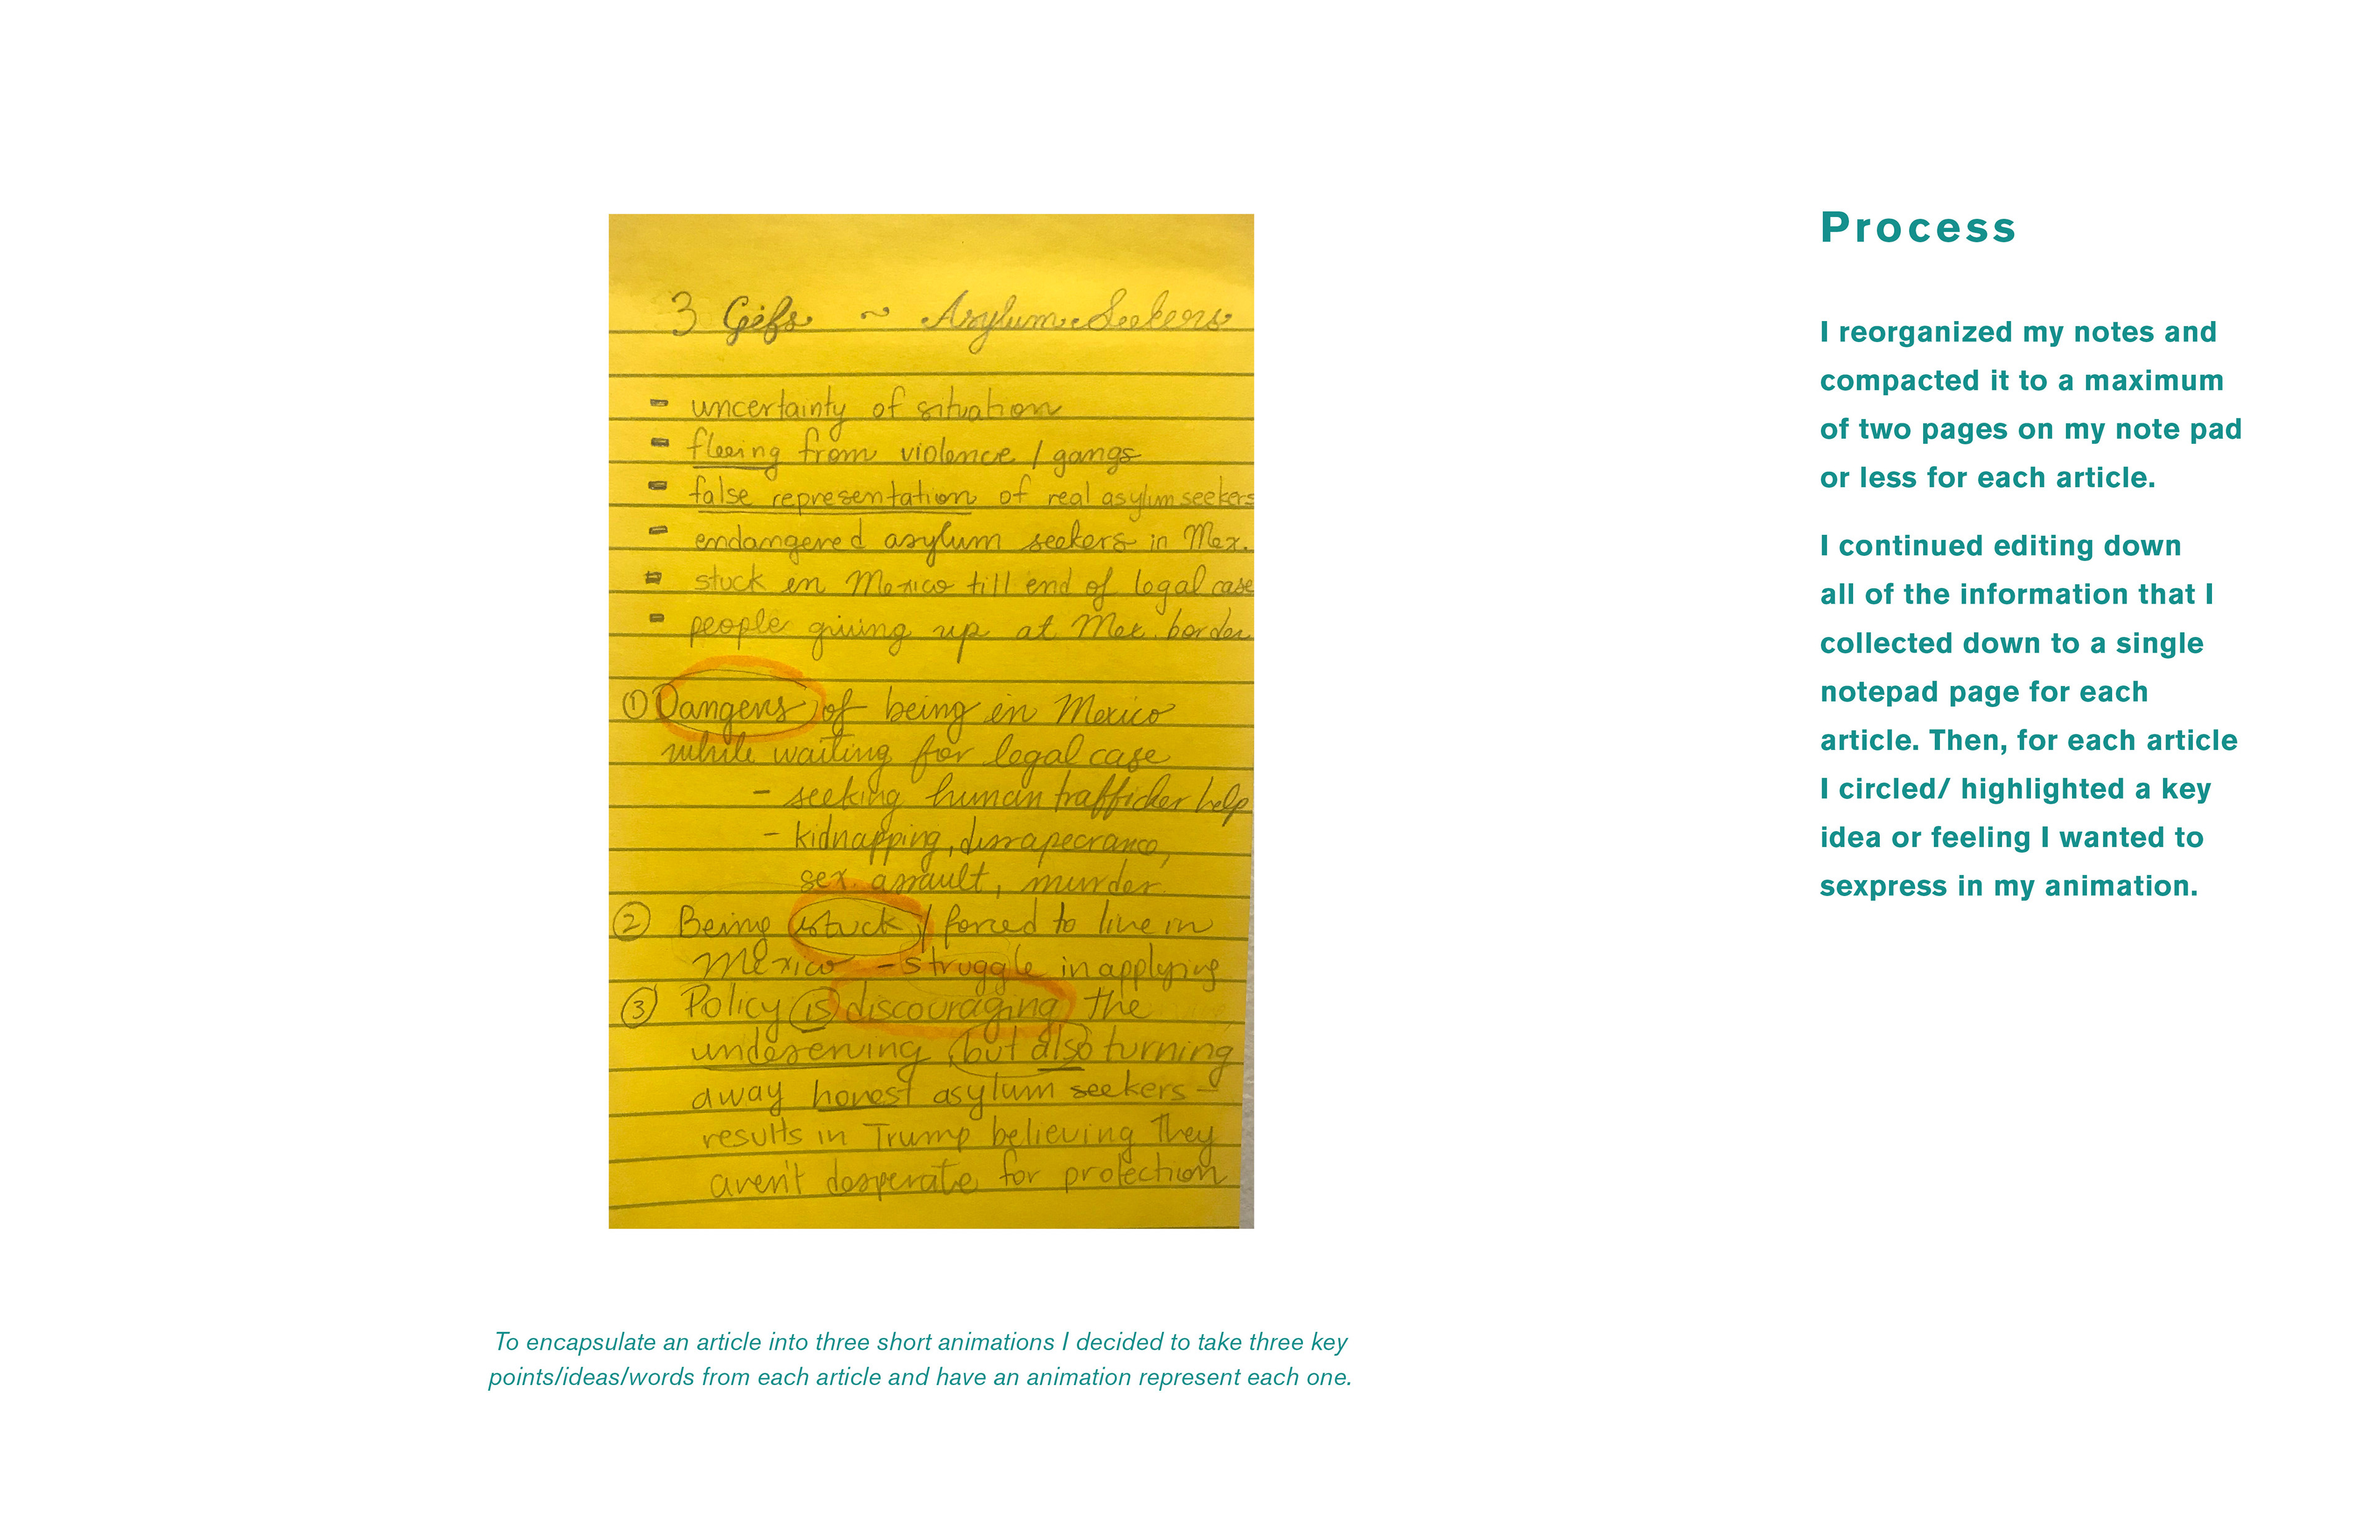 3 Gifs ~ Asylum Seekers
- uncertainty of situation
- fleeing from violence / gangs
- false representation of real asylum seekers
- endangered asylum seekers in Mex.
- stuck in Mexico till end of legal case
- people giving up at Mex. border
① Dangers of being in Mexico
while waiting for legal case
- seeking human trafficker help
- kidnapping, dissapearance,
sex. assault, murder.
② Being stuck / forced to live in
Mexico - struggle in applying
③ Policy is discouraging the
undeserving, but also turning
away honest asylum seekers -
results in Trump believing they
aren't desperate for protection
To encapsulate an article into three short animations I decided to take three key
points/ideas/words from each article and have an animation represent each one.
Process
I reorganized my notes and
compacted it to a maximum
of two pages on my note pad
or less for each article.
I continued editing down
all of the information that I
collected down to a single
notepad page for each
article. Then, for each article
I circled/ highlighted a key
idea or feeling I wanted to
sexpress in my animation.